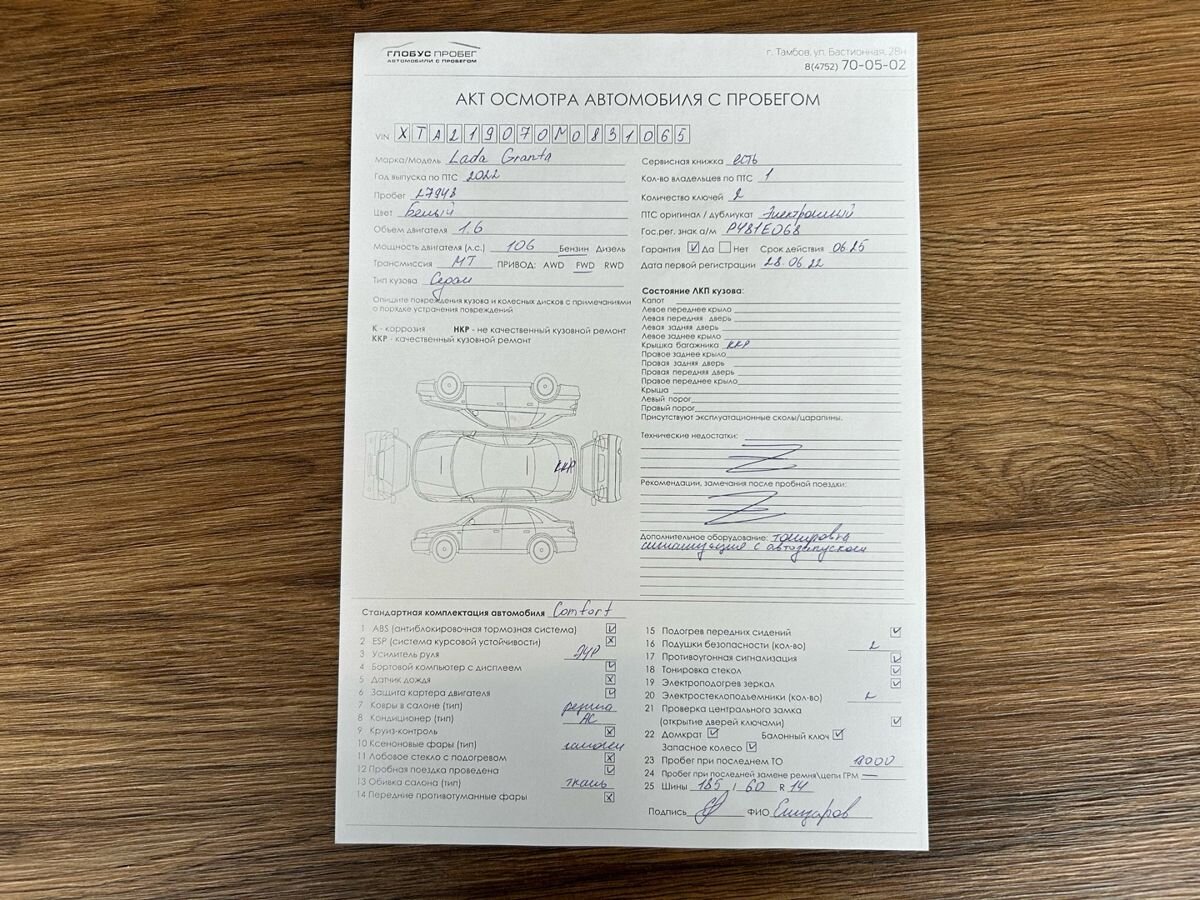 ГЛОБУС ПРОБЕГ
АВТОМОБИЛИ С ПРОБЕГОМ
г. Тамбов, ул. Бастионная, 28н
8(4752) 70-05-02
АКТ ОСМОТРА АВТОМОБИЛЯ С ПРОБЕГОМ
VIN XTA219070M0831065
Марка/Модель Lada Granta
Год выпуска по ПТС 2022
Пробег 27948
Цвет Белый
Объем двигателя 1.6
Мощность двигателя (л.с.) 106 Бензин Дизель
Трансмиссия МТ ПРИВОД: AWD FWD RWD
Тип кузова Седан
Опишите повреждения кузова и колесных дисков с примечаниями
о порядке устранения повреждений
К - коррозия НКР - не качественный кузовной ремонт
ККР - качественный кузовной ремонт
ККР
Сервисная книжка есть
Кол-во владельцев по ПТС 1
Количество ключей 2
ПТС оригинал / дубликат Электронный
Гос.рег. знак а/м Р481ЕО68
Гарантия Да Нет Срок действия 06.25
Дата первой регистрации 28.06.22
Состояние ЛКП кузова:
Капот
Левое переднее крыло
Левая передняя дверь
Левая задняя дверь
Левое заднее крыло
Крышка багажника ККР
Правое заднее крыло
Правая задняя дверь
Правая передняя дверь
Правое переднее крыло
Крыша
Левый порог
Правый порог
Присутствуют эксплуатационные сколы/царапины.
Технические недостатки:
Рекомендации, замечания после пробной поездки:
Дополнительное оборудование: тонировка
сигнализация с автозапуском
Стандартная комплектация автомобиля Comfort
1 ABS (антиблокировочная тормозная система)
2 ESP (система курсовой устойчивости)
3 Усилитель руля ЭУР
4 Бортовой компьютер с дисплеем
5 Датчик дождя
6 Защита картера двигателя
7 Ковры в салоне (тип) резина
8 Кондиционер (тип) АС
9 Круиз-контроль
10 Ксеноновые фары (тип) галоген
11 Лобовое стекло с подогревом
12 Пробная поездка проведена
13 Обивка салона (тип) ткань
14 Передние противотуманные фары
15 Подогрев передних сидений
16 Подушки безопасности (кол-во) 2
17 Противоугонная сигнализация
18 Тонировка стекол
19 Электроподогрев зеркал
20 Электростеклоподъемники (кол-во) 2
21 Проверка центрального замка
(открытие дверей ключами)
22 Домкрат Балонный ключ
Запасное колесо
23 Пробег при последнем ТО
24 Пробег при последней замене ремня\цепи ГРМ —
25 Шины 185 / 60 R 14
Подпись ФИО